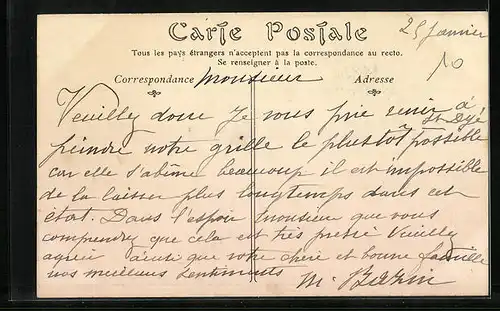 Carte Postale
Tous les pays étrangers n'acceptent pas la correspondance au recto.
Se renseigner à la poste.
25 Janvier
10
Correspondance
Adresse
Monsieur
Veuilley donc Je vous prie venir à
St Dyé
peindre notre grille le plustôt possible
car elle s'abîme beaucoup il est impossible
de la laisser plus longtemps dans cet
état. Dans l'espoir Monsieur que vous
comprendrez que cela est très pressé Veuilley
agréer ainsi que votre chère et bonne famille
nos meilleurs sentiments
M.